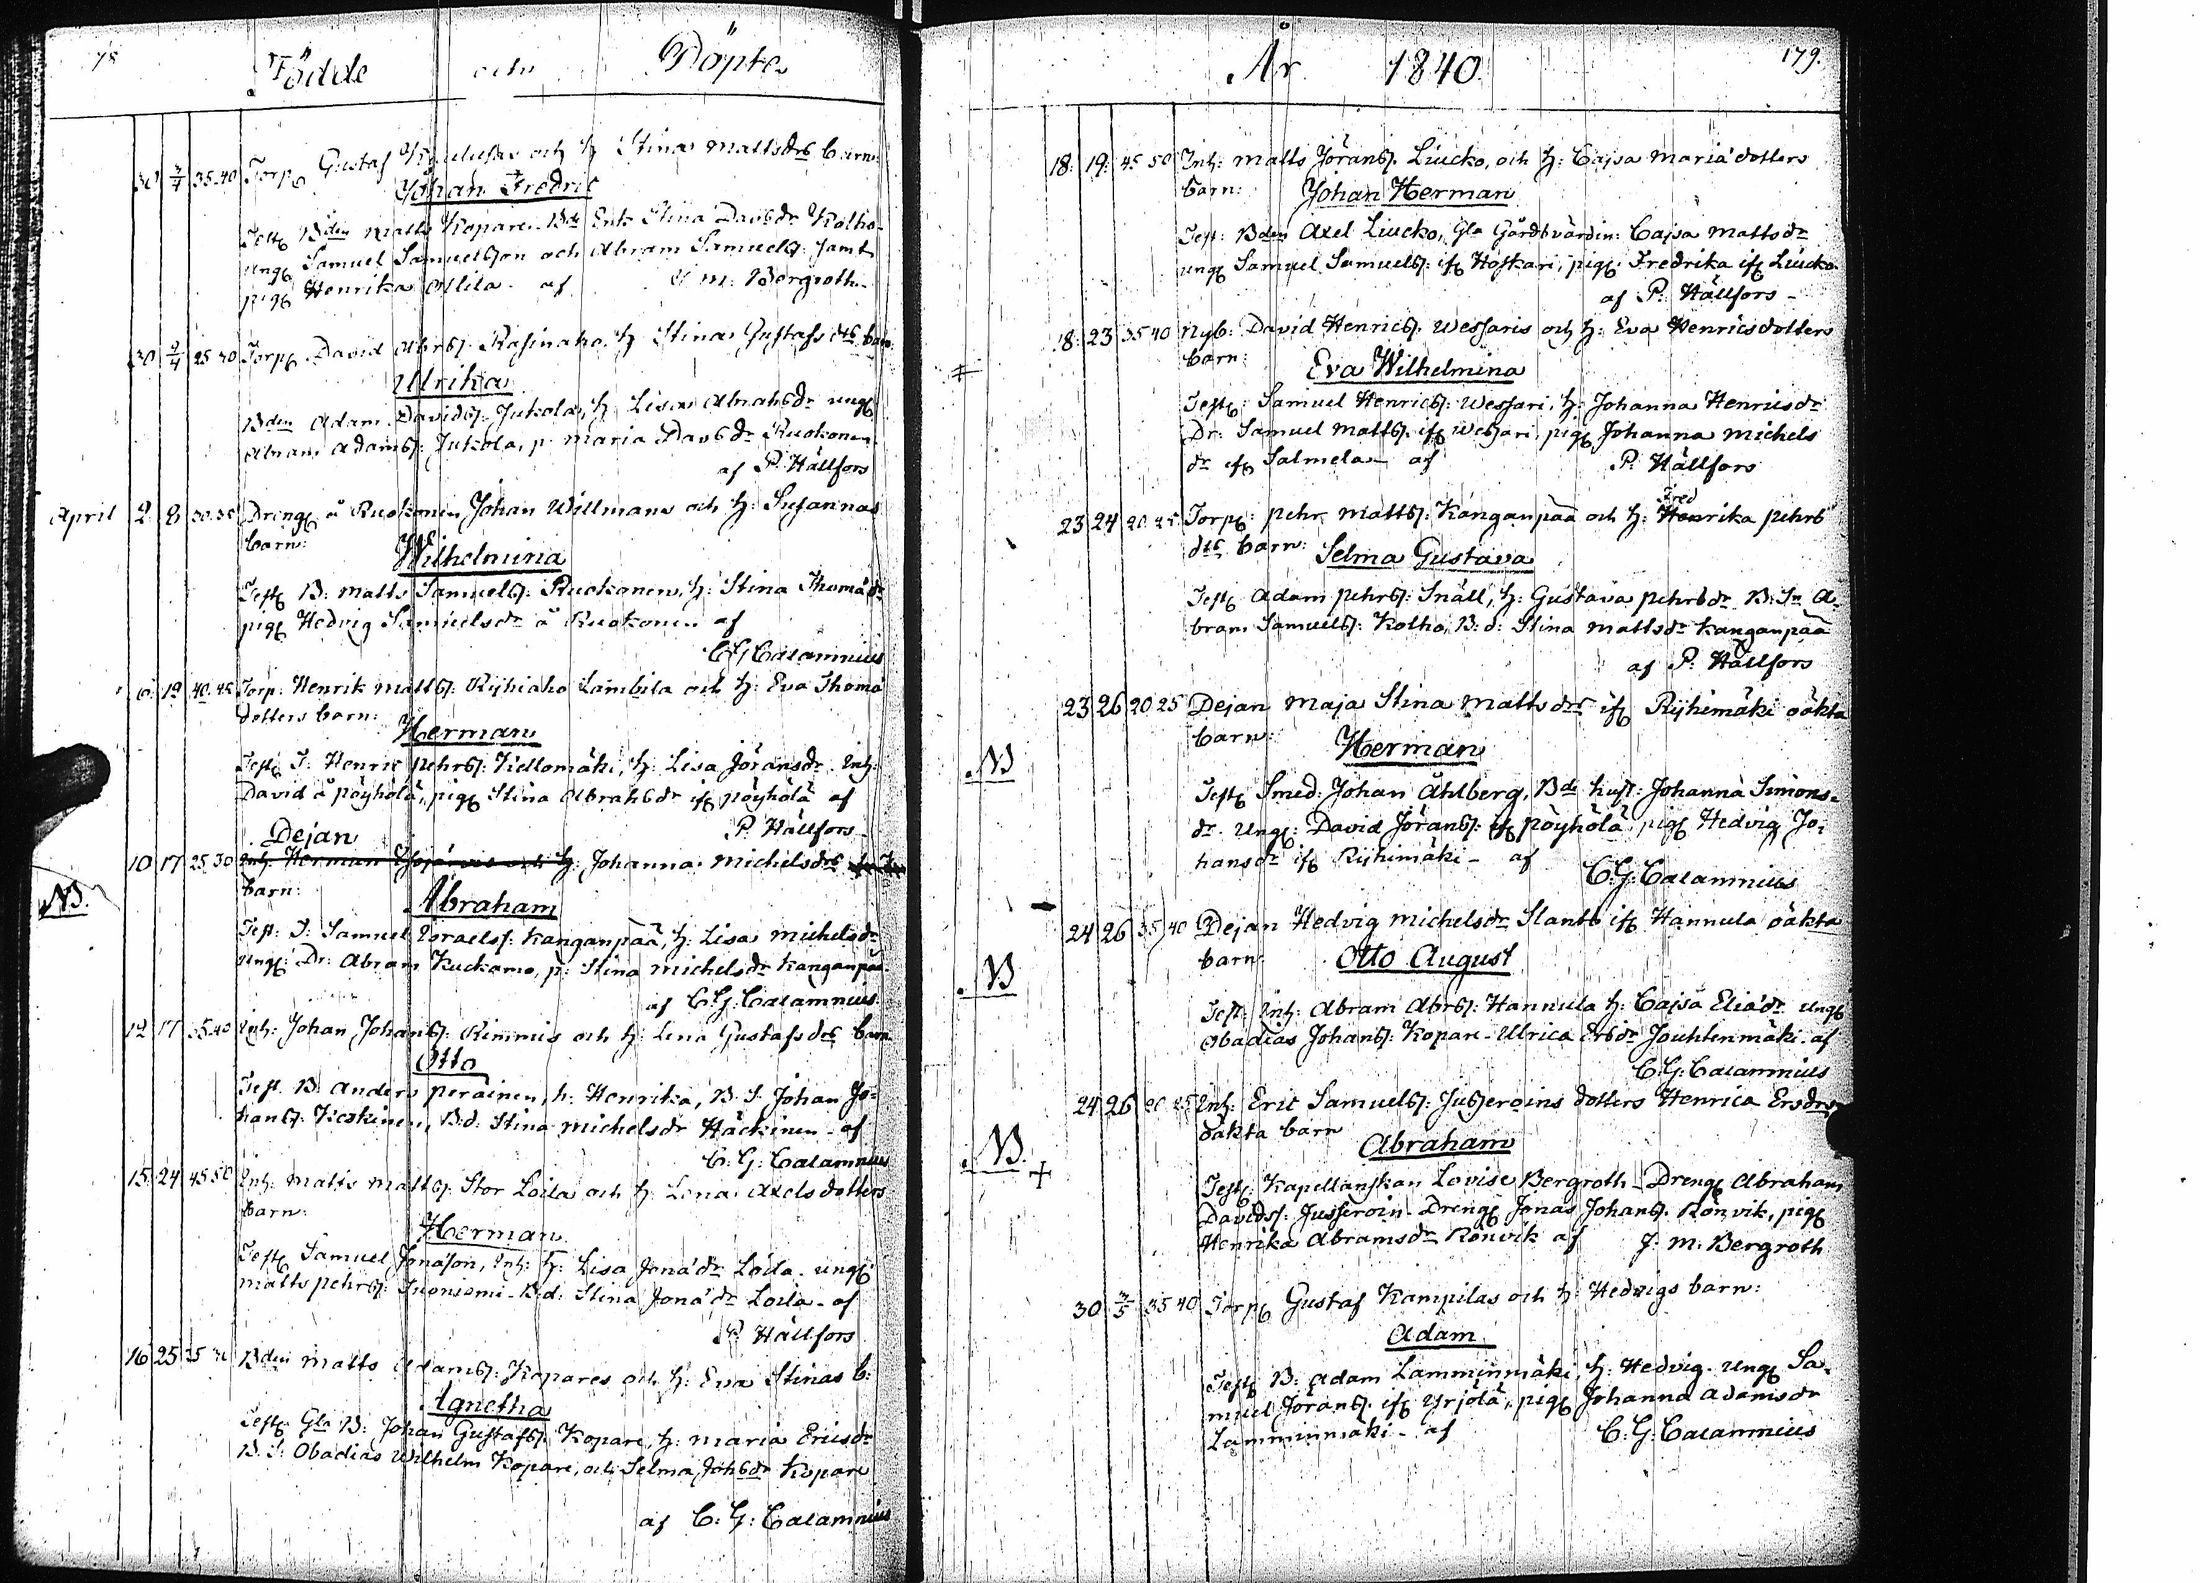 78
Födde och Döpte
30 3/4 35.40 Torp Gustaf och h: Stina Mattsdrs barn:
Johan Fredric
Test: Bden Matts Kopare. Bde Enk Stina Davdsdr Kolho
ung Samuel Samuelsson och Abram Samuels: samt
pig Henrika Ollila af J. M. Bergroth
30 2/4 25 30 Torp David Abrs: Rasinaho h: Stina Gustafs drs barn
Ulrika
Bden Adam Davids: Jukola, h: Lisa Abrahsdr ung
Abram Adams: Jukola, p. Maria Davdsdr Ruokonen
af P. Hällfors
April 2 8 30.35 Dreng å Ruokonen Johan Willmans och h: Susannas
barn:
Wilhelmina
Test B: Matts Samuels: Ruokonen, h: Stina Thomædr
pig Hedvig Samuelsdr å Ruokonen af
C. G. Calamnius
6 12 40.45 Torp: Henrik Matts: Ryhiaho Lambila och h: Eva Thomæ
dotters barn:
Herman
Test T. Henric Pehrs: Kiellomäki, h: Lisa Jöransdr. Inh:
David å Pöyhölä, pig Stina Abrahsdr if Pöyhölä af
P. Hällfors
Dejan
10 17 25 30 Inh: Herman och h: Johanna Michelsdrs
barn:
NB.
Abraham
Test: T: Samuel Israels: Kanganpää, h: Lisa Michelsdr
ung: Dr: Abram Kuckamo, p: Stina Michelsdr Kanganpää
af C. G. Calamnius
12 17 35.40 Inh: Johan Johans: Rimmis och h: Lena Gustafsdrs barn
Otto
Test. B: Anders Peräinen, h: Henrika, B. S. Johan Jo-
hans: Keskinen, B.d. Stina Michelsdr Häckinen af
C. G. Calamnius
15 24 45 50 Inh: Matts Matts: Stor Loila och h: Lena Axelsdotters
barn:
Herman
Test Samuel Jonason, Inh: h: Lisa Jonædr Loila. ung
Matts Pehrs: Inoniemi B.d: Stina Jonædr Loila af
P. Hällfors
16 25 25 30 Bden Matts Adams: Kopares och h: Eva Stinas b:
Agnetha
Test: Gla B: Johan Gustafs: Kopare, h: Maria Ericsdr
B. S: Obadias Wilhelm Kopare, och Selma Johsdr Kopare
af C: G: Calamnius
År 1840
179.
18 19 45 50 Inh: Matts Jörans: Liucko, och h: Cajsa Mariædotters
barn:
Johan Herman
Test: Bden Axel Liucko, Gla Gårdsvärdin: Cajsa Mattsdr
ung Samuel Samuels: if Höskari, pig: Fredrika if Liucko
af P. Hällfors
18 23 35 40 Nyb: David Henrics: Wessaris och h: Eva Henricsdotters
barn:
Eva Wilhelmina
Test: Samuel Henrics: Wessari, h: Johanna Henricsdr
Dr: Samuel Matts: if Wessari, pig Johanna Michels
dr if Salmela af P. Hällfors
23 24 20 25 Torp: Pehr Matts: Kanganpää och h: Henrika Pehrs
Fred
drs barn: Selma Gustava
Test Adam Pehrs: Snäll, h: Gustava Pehrsdr B: Sn A-
bram Samuels: Kolho, B: d: Stina Mattsdr Kanganpää
af P. Hällfors
23 26 20 25 Dejan Maja Stina Mattsdrs if Ryhimäki oäkta
barn:
Herman
NB
Test Smed: Johan Åhlberg, Bde hust: Johanna Simons-
dr. Ung: David Jörans: if Pöyhölä, pig Hedvig Jo-
hansdr if Ryhimäki - af
C. G: Calamnius
24 26 35 40 Dejan Hedvig Michelsdr Slants if Hannula oäkta
barn:
Otto August
NB
Test: Inh: Abram Abrs: Hannula h: Cajsa Eliædr ung
Obadias Johans: Kopare - Ulrica Ersdr Jouhtenmäki af
C. G: Calamnius
24 26 20 25 Inh: Eric Samuels: Jusseroins dotters Henrica Ersdrs
oäkta barn
Abraham
NB. +
Test: Kapellanskan Lovise Bergroth - Dreng Abraham
Davids: Jusseroin - Dreng Jonas Johans. Rönvik, pig
Henrika Abramsdr Rönvik af J. M. Bergroth
30 3/5 35 40 Torp Gustaf Kampilas och h: Hedvigs barn:
Adam
Test B: Adam Lamminmäki, h: Hedvig. Ung Sa-
muel Jörans: if Yrjölä, pig Johanna Adamsdr
Lamminmäki - af C: G: Calamnius